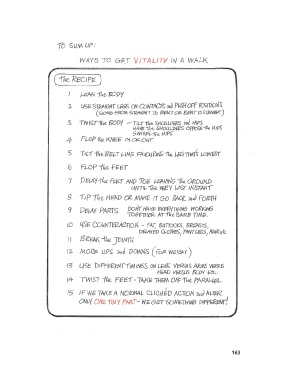 TO SUM UP:
WAYS TO GET VITALITY IN A WALK
The RECIPE
1 LEAN the BODY
2 USE STRAIGHT LEGS ON CONTACTS and PUSH OFF POSITIONS
(GOING FROM STRAIGHT TO BENT OR BENT TO STRAIGHT)
3 TWIST the BODY - TILT the SHOULDERS and HIPS
HAVE the SHOULDERS OPPOSE the HIPS
SWING the HIPS
4 FLOP the KNEE IN OR OUT
5 TILT the BELT LINE FAVOURING the LEG THAT'S LOWEST
6 FLOP the FEET
7 DELAY the FOOT AND TOE LEAVING the GROUND
UNTIL the VERY LAST INSTANT
8 TIP the HEAD OR MAKE IT GO BACK and FORTH
9 DELAY PARTS DON'T HAVE EVERYTHING WORKING
TOGETHER AT the SAME TIME.
10 USE COUNTERACTION - FAT, BUTTOCKS, BREASTS,
DELAYED CLOTHES, PANT LEGS, HAIR ETC.
11 BREAK the JOINTS
12 MORE UPS and DOWNS (FOR WEIGHT)
13 USE DIFFERENT TIMINGS ON LEGS VERSUS ARMS VERSUS
HEAD VERSUS BODY ETC..
14 TWIST the FEET - TAKE THEM OFF the PARALLEL
15 IF WE TAKE A NORMAL CLICHÉD ACTION and ALTER
ONLY ONE TINY PART - WE GET SOMETHING DIFFERENT!
163